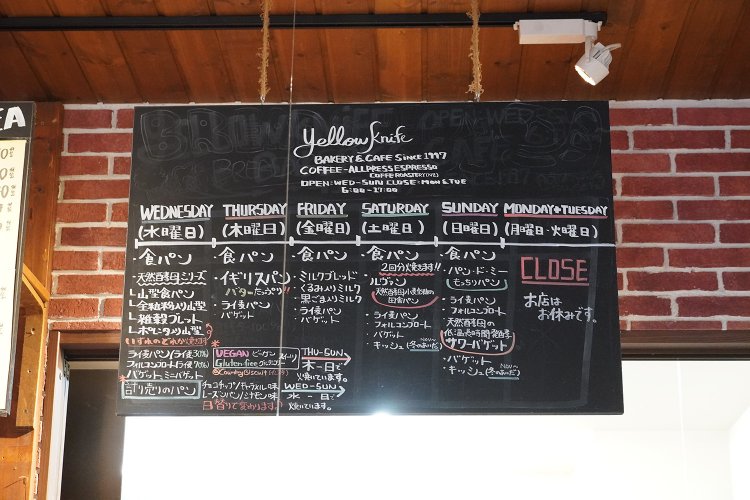 yellow knife
BAKERY & CAFE SINCE 1997
COFFEE - ALLPRESS ESPRESSO
COFFEE ROASTERY(NZ)
OPEN: WED-SUN CLOSE: MON & TUE
WEDNESDAY
(水曜日)
・食パン
・天然酵母シリーズ
山型食パン
全粒粉入り山型
雑穀ブレット
いずれかのぞれか焼き
ライ麦パン(ライ麦30%)
フォルコンブロート(ライ麦70%)
バゲット ミニバゲット
計り売りのパン
THURSDAY
(木曜日)
・食パン
・イギリスパン
バターたっぷり
・ライ麦パン
・バゲット
FRIDAY
(金曜日)
・食パン
・ミルクブレッド
・くるみ入りミルク
・黒ごま入りミルク
・ライ麦パン
・バゲット
SATURDAY
(土曜日)
・食パン
2回分焼きます!!
・ルヴァン
・ライ麦パン
・フォルコンブロート
・バゲット
・キッシュ(冬のあいだ)
SUNDAY
(日曜日)
・食パン
・パン・ド・ミー
もっちりパン
・ライ麦パン
・フォルコンブロート
・天然酵母の
低温長時間発酵
サワーバゲット
・バゲット
・キッシュ(冬のあいだ)
MONDAY+TUESDAY
(月曜日・火曜日)
CLOSE
お店は
お休みです。
VEGAN ビーガン
Gluten-free グルテンフリー
Country Biscuit
チョコチップ/キャラメル味
レーズンパン/シナモン味
日替りで変わります!
THU-SUN
木-日で
焼いています。
WED-SUN
水-日で
焼いています。